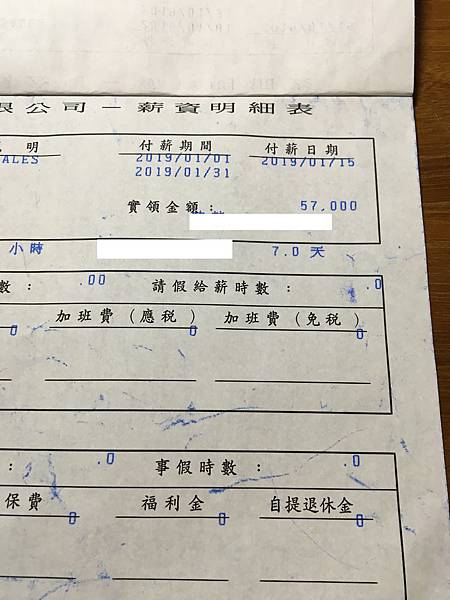 限公司－薪資明細表
明 付薪期間 付薪日期
ALES 2019/01/01 2019/01/15
2019/01/31
實領金額： 57,000
小時 7.0 天
數： .00 請假給薪時數： .0
加班費（應稅） 加班費（免稅）
0 0 0
： .0 事假時數： .0
保費 福利金 自提退休金
0 0 0